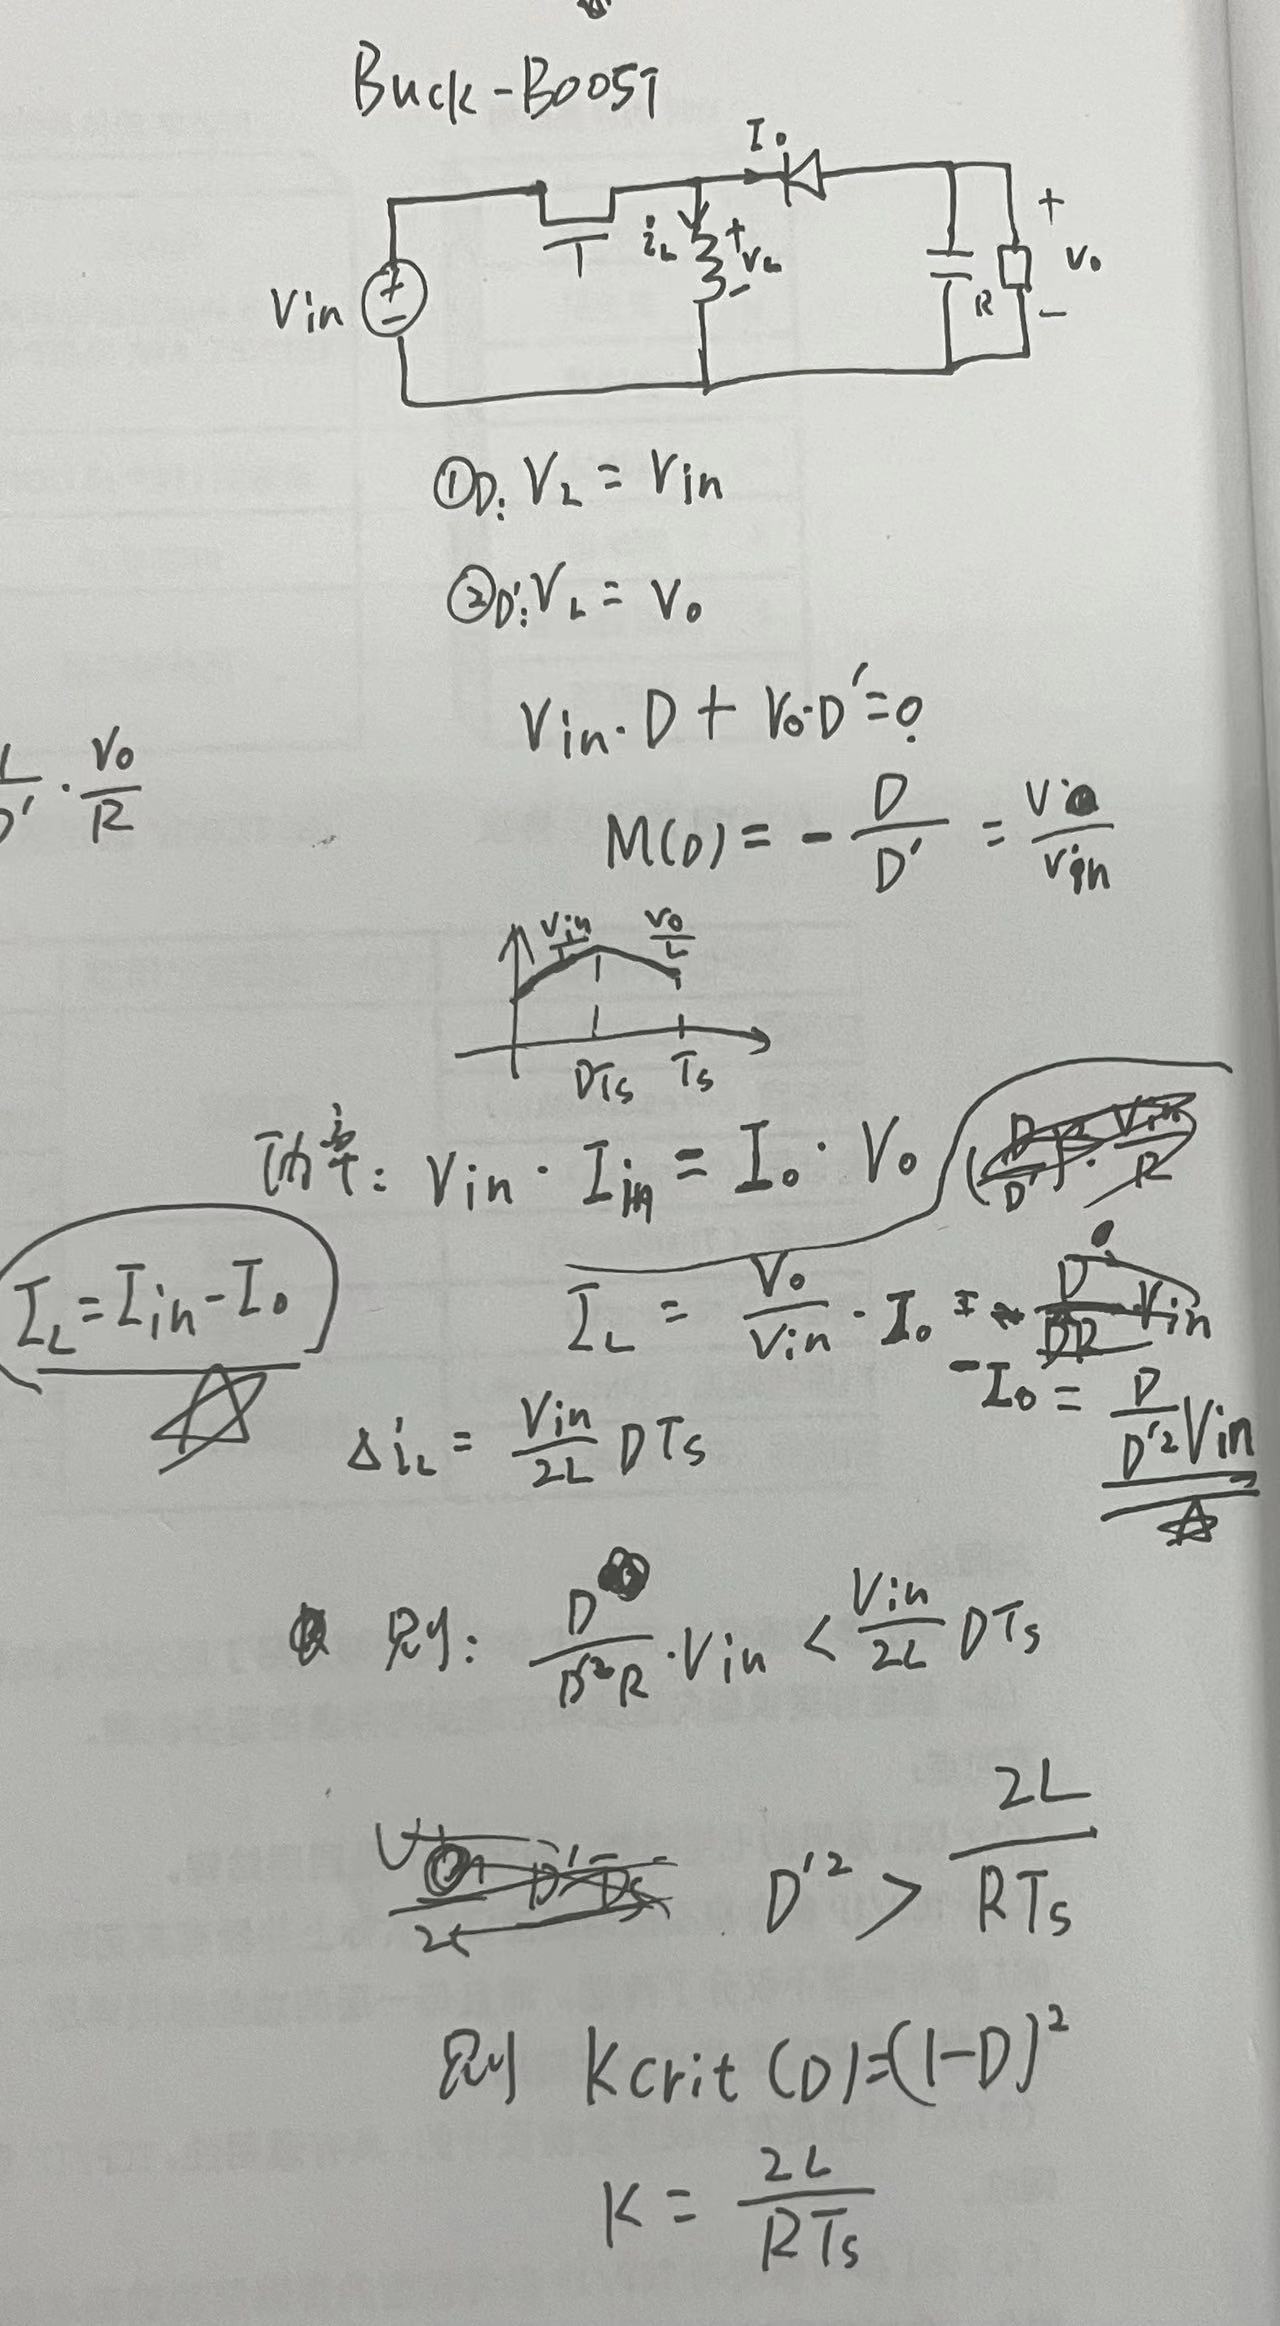 Buck-BOOST
I₀
Vin
+
-
iL
+
VL
-
R
+
V₀
-
①D: VL = Vin
②D': VL = V₀
Vin·D + V₀·D' = 0
/D' · V₀/R
M(D) = - D/D' = V₀/Vin
Vin/L
V₀/L
DTs
Ts
功率: Vin · Iin = I₀ · V₀
IL = Iin - I₀
IL = V₀/Vin · I₀
- I₀ = D/D'² Vin
ΔiL = Vin/2L DTs
则: D/D'²R · Vin < Vin/2L DTs
D'² > 2L/RTs
则 Kcrit (D) = (1-D)²
K = 2L/RTs